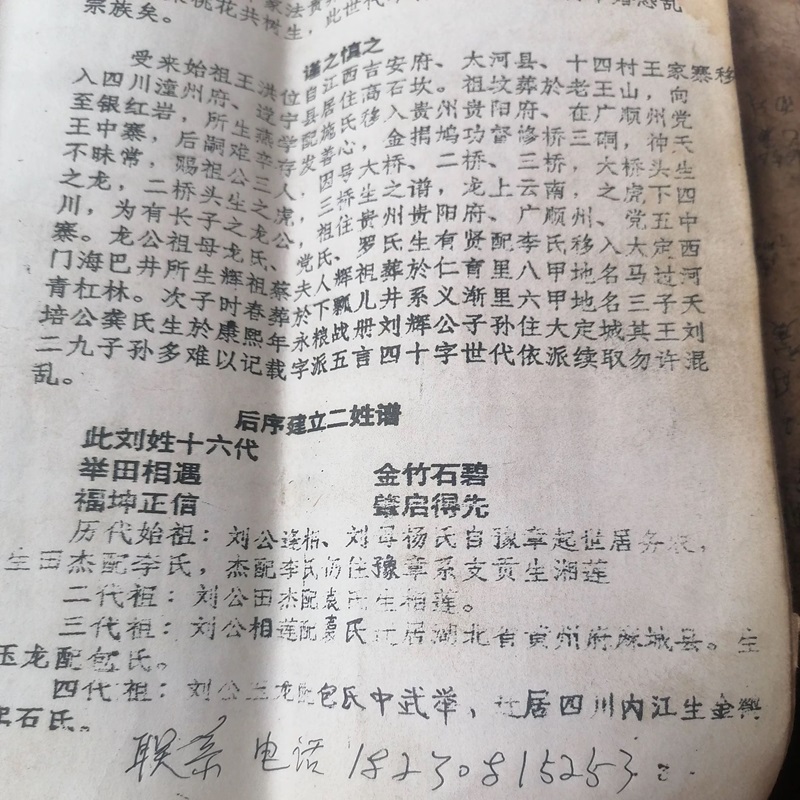 宗族矣。
谨之慎之
受来始祖王洪位自江西吉安府、太河县、十四村王家寨移
入四川潼州府、遂宁县居住高石坎。祖坟葬於老王山，向
至银红岩，所生燕学配施氏移入贵州贵阳府、在广顺州党
王中寨，后嗣难辛存发善心，金捐鸠功督修桥三硐，神天
不昧常，赐祖公三人，因号大桥、二桥、三桥，大桥头生
之龙，二桥头生之虎，三桥生之谱，龙上云南，之虎下四
川，为有长子之龙公，祖住贵州贵阳府、广顺州、党五中
寨。龙公祖母龙氏、党氏、罗氏生有贤配李氏移入大定西
门海巴井所生辉祖蔡夫人辉祖葬於仁育里八甲地名马过河
青杠林。次子时春葬於下瓢儿井系义渐里六甲地名三子天
培公龚氏生於康熙年永粮战册刘辉公子孙住大定城其王刘
二九子孙多难以记载字派五言四十字世代依派续取勿许混
乱。
后序建立二姓谱
此刘姓十六代
举田相遇 金竹石碧
福坤正信 肇启得先
历代始祖：刘公逢相、刘母杨氏自豫章起世居务农，
生田杰配李氏，杰配李氏仍住豫章系支贡生湘莲
二代祖：刘公田杰配袁氏生相莲。
三代祖：刘公相莲配袁氏迁居湖北省黄州府麻城县。生
玉龙配包氏。
四代祖：刘公玉龙配包氏中武举，迁居四川内江生金
石氏。
联系电话 18230815253